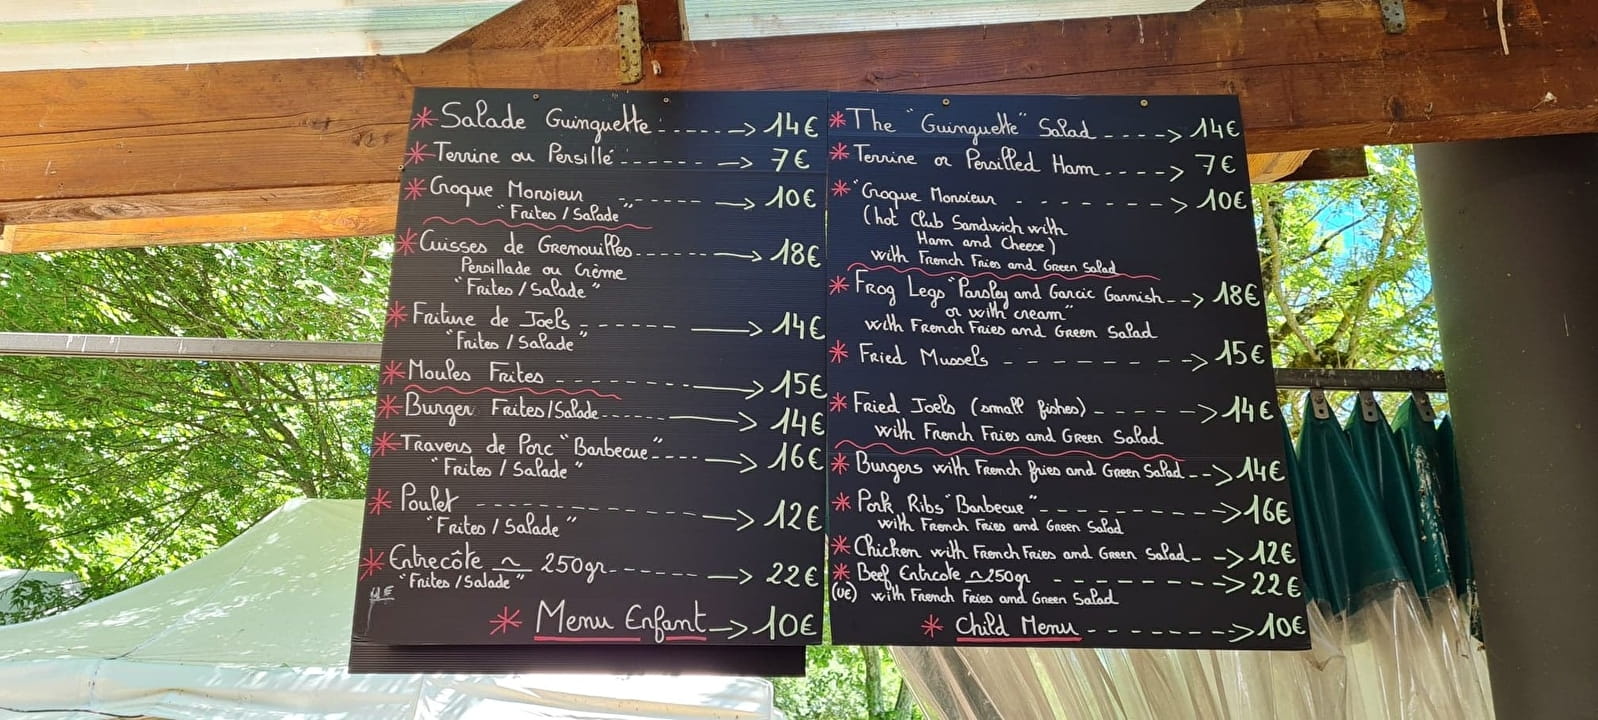 * Salade Guinguette ------> 14€
* Terrine ou Persillé ------> 7€
* Croque Monsieur ------> 10€
"Frites / Salade"
* Cuisses de Grenouilles ------> 18€
Persillade ou Crème
"Frites / Salade"
* Friture de Joels ------> 14€
"Frites / Salade"
* Moules Frites ------> 15€
* Burger Frites/Salade ------> 14€
* Travers de Porc "Barbecue" ------> 16€
"Frites / Salade"
* Poulet ------> 12€
"Frites / Salade"
* Entrecôte ~ 250gr ------> 22€
"Frites / Salade"
* Menu Enfant -> 10€
* The "Guinguette" Salad ----> 14€
* Terrine or Persilled Ham ----> 7€
* "Croque Monsieur ------> 10€
(hot Club Sandwich with
Ham and Cheese)
with French Fries and Green Salad
* Frog Legs "Parsley and Garcic Garnish --> 18€
or with cream"
with French Fries and Green Salad
* Fried Mussels ------> 15€
* Fried Joels (small fishes) -----> 14€
with French Fries and Green Salad
* Burgers with French fries and Green Salad --> 14€
* Pork Ribs "Barbecue" ------> 16€
with French Fries and Green Salad
* Chicken with French Fries and Green Salad --> 12€
* Beef Entrcote ~250gr ------> 22€
(UE) with French Fries and Green Salad
* Child Menu ------> 10€